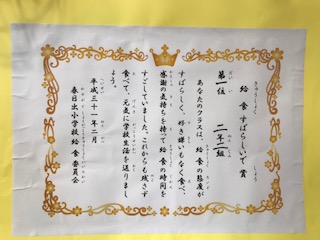 給食 すばらしいで賞
第一位 二年二組
あなたのクラスは、給食の態度が
すばらしく、好き嫌いもなく食べ、
感謝の気持ちを持って給食の時間を
すごしていました。これからも残さず
食べて、元気に学校生活を送りまし
ょう。
平成三十一年二月
春日出小学校 給食委員会